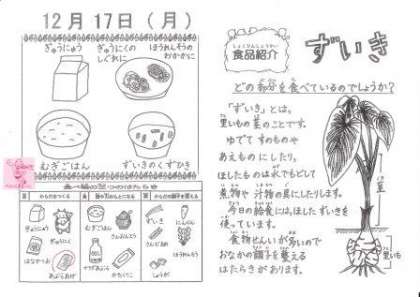 12月17日(月)
ぎゅうにゅう
ぎゅうにくの
しぐれに
ほうれんそうの
おかかに
むぎごはん
ずいきのくずかき
ぎゅうにゅう
ぎゅうにく
はなかつお
あぶらあげ
むぎごはん
さとう
かたくりこ
ずいき
にんじん
しょうが
しょくひんしょうかい
食品紹介
ずいき
どの部分を食べているのでしょうか?
「ずいき」とは、
里いもの茎のことです。
ゆでて すのものや
あえものにしたり、
ほしたものは水でもどして
煮物や汁物の具にしたりします。
今日の給食には、ほしたずいきを
使っています。
食物せんいが多いので
おなかの調子を整える
はたらきがあります。
茎
里いも